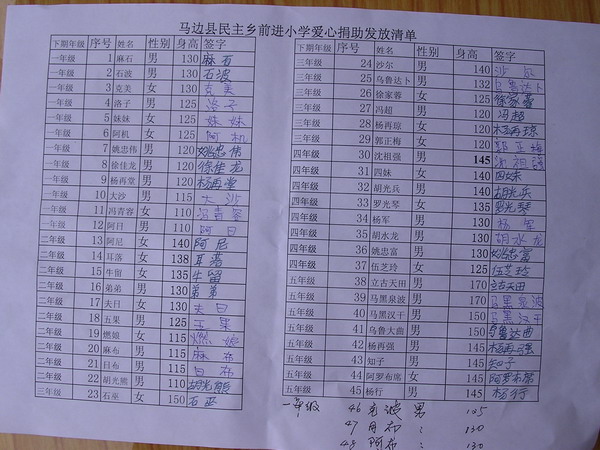 马边县民主乡前进小学爱心捐助发放清单
下期年级 序号 姓名 性别 身高 签字
一年级 1 麻石 男 130 麻石
一年级 2 石波 男 130 石波
一年级 3 克美 女 130 克美
一年级 4 洛子 男 125 洛子
一年级 5 妹妹 女 125 妹妹
一年级 6 阿机 女 125 阿机
一年级 7 姚忠伟 男 120 姚忠伟
一年级 8 徐佳龙 男 120 徐佳龙
一年级 9 杨再堂 男 120 杨再堂
一年级 10 大沙 男 115 大沙
一年级 11 冯青容 女 110 冯青容
二年级 12 阿日 男 110 阿日
二年级 13 阿尼 女 140 阿尼
二年级 14 耳落 女 138 耳落
二年级 15 牛留 男 135 牛留
二年级 16 弟弟 男 130 弟弟
二年级 17 夫日 女 130 夫日
二年级 18 五果 男 125 五果
二年级 19 燃娘 女 115 燃娘
二年级 20 麻布 男 115 麻布
二年级 21 日布 男 115 日布
二年级 22 胡光熊 男 110 胡光熊
三年级 23 石巫 女 150 石巫
下期年级 序号 姓名 性别 身高 签字
三年级 24 沙尔 男 140 沙尔
三年级 25 乌鲁达卜 男 132 乌鲁达卜
三年级 26 徐家蓉 女 125 徐家蓉
三年级 27 冯超 男 120 冯超
三年级 28 杨再琼 女 120 杨再琼
三年级 29 郭正梅 女 120 郭正梅
四年级 30 沈祖强 男 145
四年级 31 四妹 女 140 四妹
四年级 32 胡光兵 男 140 胡光兵
四年级 33 罗光琴 女 135 罗光琴
四年级 34 杨军 男 130 杨军
四年级 35 胡水龙 男 130 胡水龙
四年级 36 姚忠富 男 130 姚忠富
四年级 37 伍芝玲 女 125 伍芝玲
五年级 38 立古天田 男 170 立古天田
五年级 39 马黑泉波 男 170 马黑泉波
五年级 40 马黑汉干 男 150 马黑汉干
五年级 41 乌鲁大曲 男 150 乌鲁达曲
五年级 42 杨再强 男 145 杨再强
五年级 43 知子 男 145 知子
五年级 44 阿罗布席 女 145 阿罗布席
五年级 45 杨行 男 145 杨行
一年级 46 男
47 130
48 阿布 130